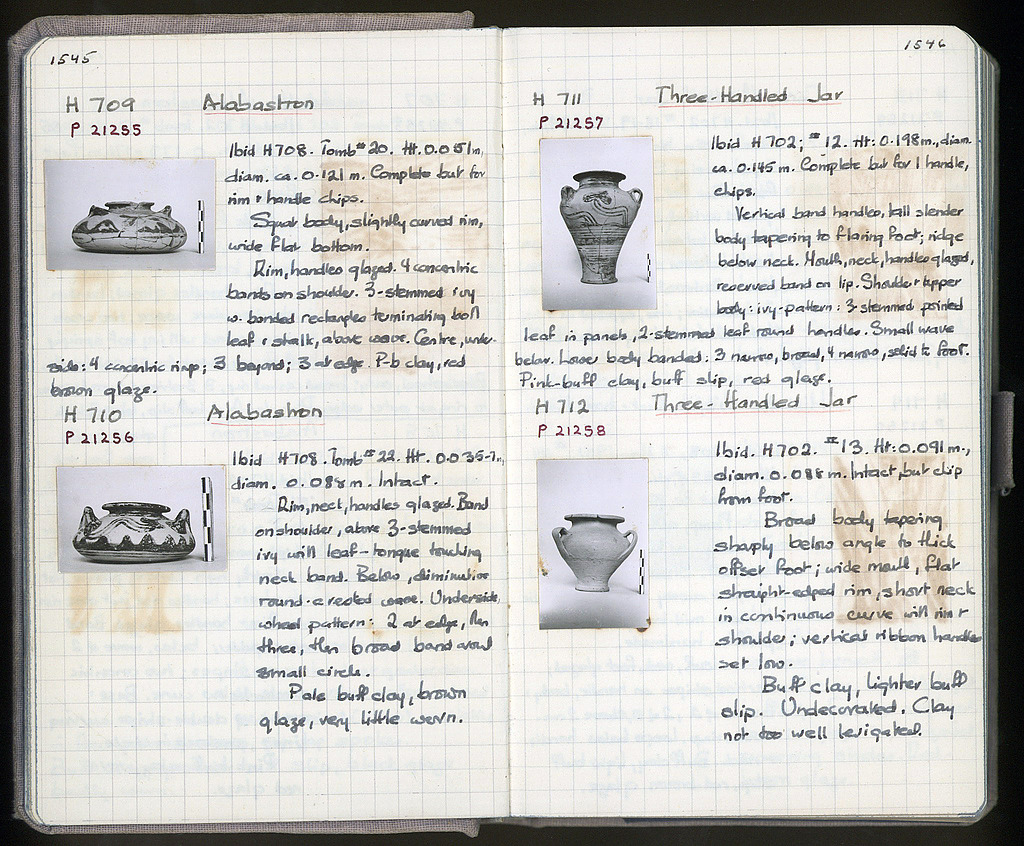 1545
H 709 Alabastron
P 21255
Ibid H708. Tomb # 20. Ht. 0.051m,
diam. ca. 0.121 m. Complete but for
rim & handle chips.
Squat body, slightly curved rim,
wide flat bottom.
Rim, handles glazed. 4 concentric
bands on shoulder. 3-stemmed ivy
w. banded rectangles terminating both
leaf & stalk, above wave. Centre, under-
side: 4 concentric rings; 3 beyond; 3 at edge. P-b clay, red
brown glaze.
H 710 Alabastron
P 21256
Ibid H708. Tomb # 22. Ht. 0.035-7m,
diam. 0.088 m. Intact.
Rim, neck, handles glazed. Band
on shoulder, above 3-stemmed
ivy with leaf-tongue touching
neck band. Below, diminutive
round-crested wave. Underside,
wheel pattern: 2 at edge, then
three, then broad band around
small circle.
Pale buff clay, brown
glaze, very little worn.
1546
H 711 Three-Handled Jar
P 21257
Ibid H702; # 12. Ht: 0.198m., diam.
ca. 0.145 m. Complete but for 1 handle,
chips.
Vertical band handles, tall slender
body tapering to flaring foot; ridge
below neck. Mouth, neck, handles glazed,
reserved band on lip. Shoulder & upper
body: ivy-pattern: 3-stemmed pointed
leaf in panels, 2-stemmed leaf round handles. Small wave
below. Lower body banded: 3 narrow, broad, 4 narrow, solid to foot.
Pink-buff clay, buff slip, red glaze.
H 712 Three-Handled Jar
P 21258
Ibid. H702. # 13. Ht: 0.091m.,
diam. 0.088 m. Intact, but chip
from foot.
Broad body tapering
sharply below angle to thick
offset foot; wide mouth, flat
straight-edged rim, short neck
in continuous curve with rim &
shoulder; vertical ribbon handles
set low.
Buff clay, lighter buff
slip. Undecorated. Clay
not too well levigated.